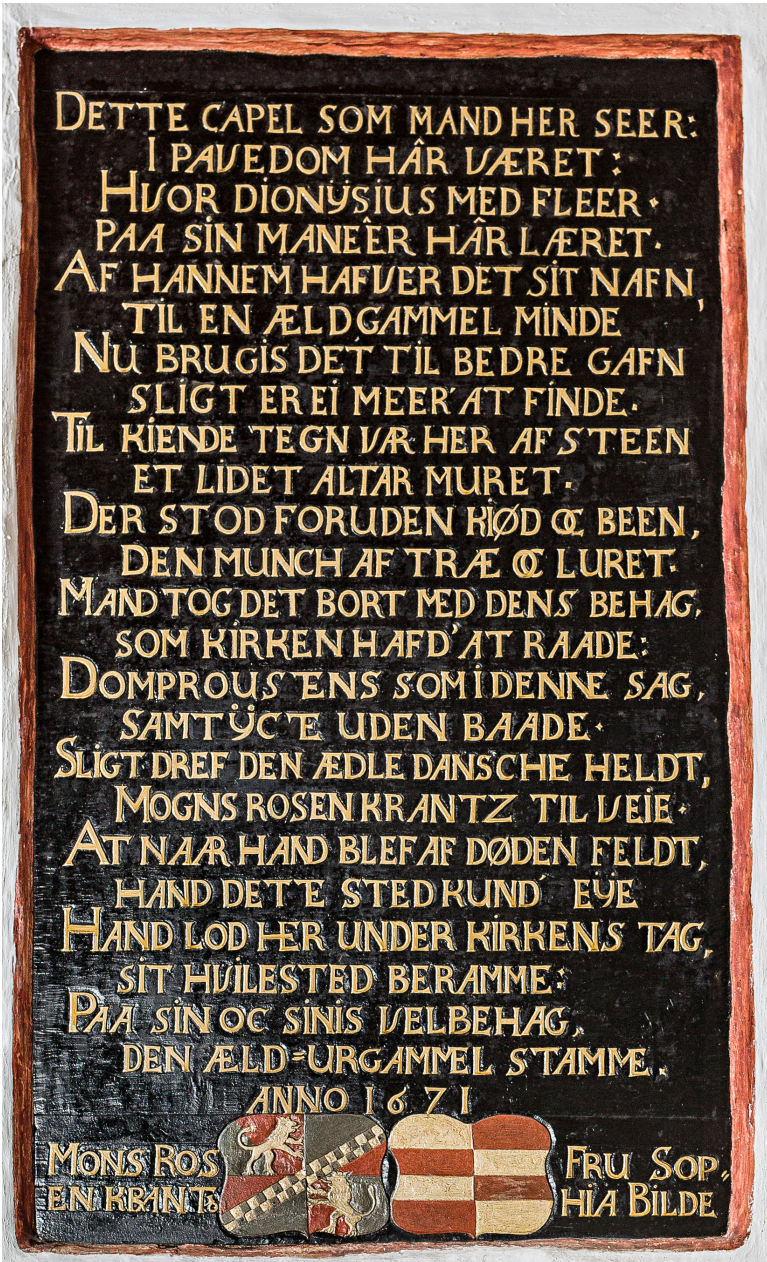 DETTE CAPEL SOM MAND HER SEER:
I PAVEDOM HÂR VÆRET:
HVOR DIONŸSIUS MED FLEER.
PAA SIN MANEÊR HÂR LÆRET.
AF HANNEM HAFVER DET SIT NAFN,
TIL EN ÆLDGAMMEL MINDE
NU BRUGIS DET TIL BEDRE GAFN
SLIGT ER EI MEER' AT FINDE.
TIL KIENDE TEGN VAR HER AF STEEN
ET LIDET ALTAR MURET.
DER STOD FORUDEN KIØD OC BEEN,
DEN MUNCH AF TRÆ OC LURET.
MAND TOG DET BORT MED DENS BEHAG,
SOM KIRKEN HAFD' AT RAADE:
DOMPROUSTENS SOM I DENNE SAG,
SAMTŸCTE UDEN BAADE.
SLIGT DREF DEN ÆDLE DANSCHE HELDT,
MOGNS ROSENKRANTZ TIL VEIE.
AT NAAR HAND BLEF AF DØDEN FELDT,
HAND DETTE STED KUND' EŸE
HAND LOD HER UNDER KIRKENS TAG,
SIT HVILESTED BERAMME:
PAA SIN OC SINIS VELBEHAG,
DEN ÆLD=URGAMMEL STAMME.
ANNO 1671
MONS ROS
EN KRANTS
FRU SOP=
HIA BILDE